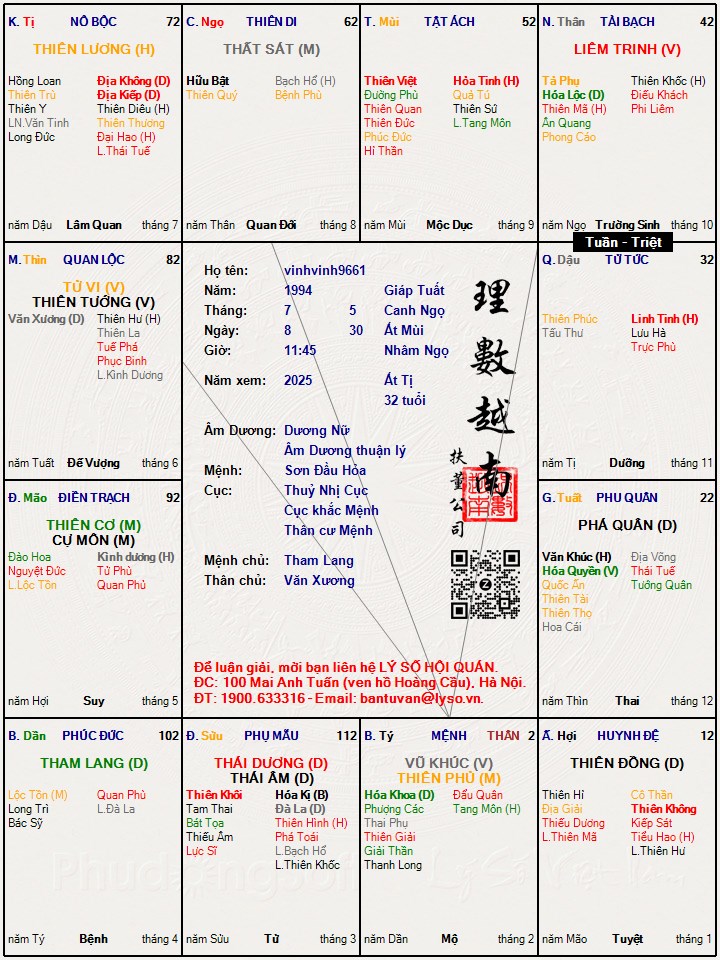 K. Tị NÔ BỘC 72
THIÊN LƯƠNG (H)
Hồng Loan Địa Không (D)
Thiên Trù Địa Kiếp (D)
Thiên Y Thiên Diêu (H)
LN.Văn Tinh Thiên Thương
Long Đức Đại Hao (H)
L.Thái Tuế
năm Dậu Lâm Quan tháng 7
C. Ngọ THIÊN DI 62
THẤT SÁT (M)
Hữu Bật Bạch Hổ (H)
Thiên Quý Bệnh Phù
năm Thân Quan Đới tháng 8
T. Mùi TẬT ÁCH 52
Thiên Việt Hỏa Tinh (H)
Đường Phù Quả Tú
Thiên Quan Thiên Sứ
Thiên Đức L.Tang Môn
Phúc Đức
Hỉ Thần
năm Mùi Mộc Dục tháng 9
N. Thân TÀI BẠCH 42
LIÊM TRINH (V)
Tả Phụ Thiên Khốc (H)
Hóa Lộc (D) Điếu Khách
Thiên Mã (H) Phi Liêm
Ân Quang
Phong Cáo
năm Ngọ Trường Sinh tháng 10
Tuần - Triệt
M. Thìn QUAN LỘC 82
TỬ VI (V)
THIÊN TƯỚNG (V)
Văn Xương (D) Thiên Hư (H)
Thiên La
Tuế Phá
Phục Binh
L.Kình Dương
năm Tuất Đế Vượng tháng 6
Họ tên: vinhvinh9661
Năm: 1994 Giáp Tuất
Tháng: 7 5 Canh Ngọ
Ngày: 8 30 Ất Mùi
Giờ: 11:45 Nhâm Ngọ
Năm xem: 2025 Ất Tị
32 tuổi
Âm Dương: Dương Nữ
Âm Dương thuận lý
Mệnh: Sơn Đầu Hỏa
Cục: Thuỷ Nhị Cục
Cục khắc Mệnh
Thân cư Mệnh
Mệnh chủ: Tham Lang
Thân chủ: Văn Xương
理數越南
扶董公司
Z
Để luận giải, mời bạn liên hệ LÝ SỐ HỘI QUÁN.
ĐC: 100 Mai Anh Tuấn (ven hồ Hoàng Cầu), Hà Nội.
ĐT: 1900.633316 - Email: bantuvan@lyso.vn.
Q. Dậu TỬ TỨC 32
Thiên Phúc Linh Tinh (H)
Tấu Thư Lưu Hà
Trực Phù
năm Tị Dưỡng tháng 11
Đ. Mão ĐIỀN TRẠCH 92
THIÊN CƠ (M)
CỰ MÔN (M)
Đào Hoa Kình dương (H)
Nguyệt Đức Tử Phù
L.Lộc Tồn Quan Phủ
năm Hợi Suy tháng 5
G. Tuất PHU QUÂN 22
PHÁ QUÂN (D)
Văn Khúc (H) Địa Võng
Hóa Quyền (V) Thái Tuế
Quốc Ấn Tướng Quân
Thiên Tài
Thiên Thọ
Hoa Cái
năm Thìn Thai tháng 12
B. Dần PHÚC ĐỨC 102
THAM LANG (D)
Lộc Tồn (M) Quan Phù
Long Trì L.Đà La
Bác Sỹ
năm Tý Bệnh tháng 4
Đ. Sửu PHỤ MẪU 112
THÁI DƯƠNG (D)
THÁI ÂM (D)
Thiên Khôi Hóa Kị (B)
Tam Thai Đà La (D)
Bát Tọa Thiên Hình (H)
Thiếu Âm Phá Toái
Lực Sĩ L.Bạch Hổ
L.Thiên Khốc
năm Sửu Tử tháng 3
B. Tý MỆNH THÂN 2
VŨ KHÚC (V)
THIÊN PHỦ (M)
Hóa Khoa (D) Đẩu Quân
Phượng Các Tang Môn (H)
Thai Phụ
Thiên Giải
Giải Thần
Thanh Long
năm Dần Mộ tháng 2
Ấ. Hợi HUYNH ĐỆ 12
THIÊN ĐỒNG (D)
Thiên Hỉ Cô Thần
Địa Giải Thiên Không
Thiếu Dương Kiếp Sát
L.Thiên Mã Tiểu Hao (H)
L.Thiên Hư
năm Mão Tuyệt tháng 1